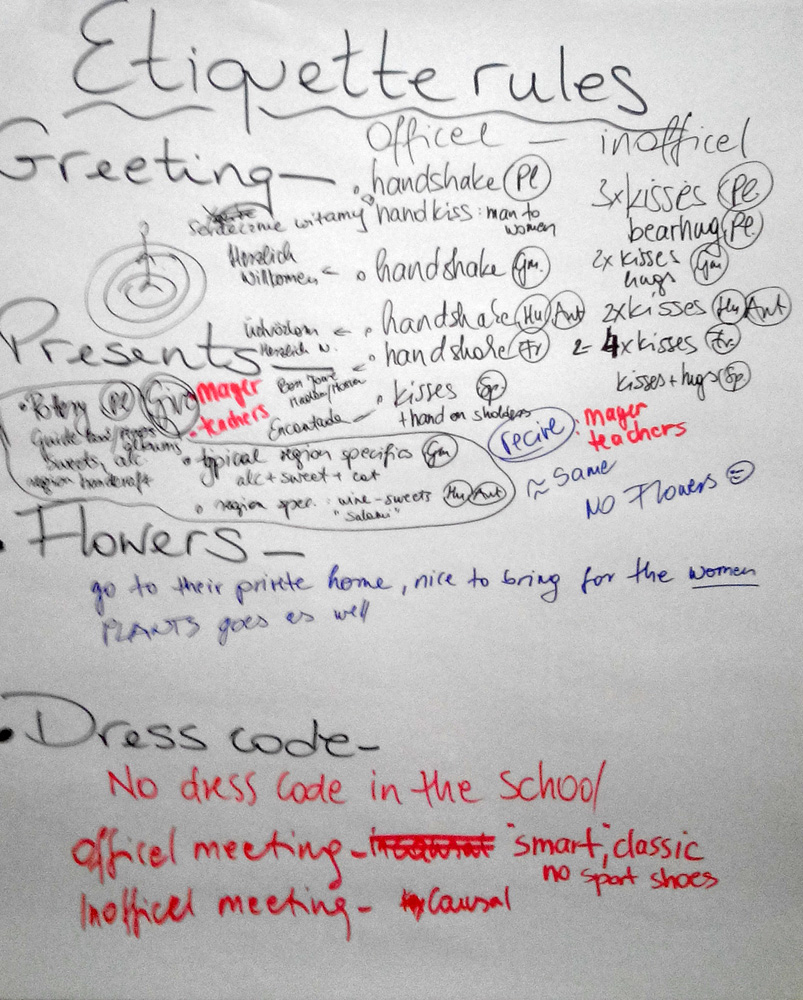 Etiquette rules
Officel — inofficel
Greeting —
• handshake (Pl) 3x kisses (Pl)
Serdecznie witamy handkiss: man to women bearhug (Pl)
Herzlich willkomen ← • handshake (Gm) 2x kisses hugs (Gm)
Üdvözlom Herzlich w. ← • handshake (Hu) (Aut) 2x kisses (Hu) (Aut)
Presents —
← • handshake (Fr) 2 - 4x kisses (Fr)
Encantada — • kisses (Sp) kisses + hugs (Sp)
+ hand on sholders
• Potery (Pl) Give
mager
• teachers
sweets, alc
region handcraft
recive : mager
teachers
• typical region specifics (Gm)
alc + sweet + cat
• region spec. : wine - sweets (Hu) (Aut)
"Salami"
≈ Same
NO Flowers
• Flowers —
go to their privete home, nice to bring for the women
PLANTS goes as well
• Dress code -
No dress code in the school
Officel meeting - "smart", classic
no sport shoes
Inofficel meeting - Causal